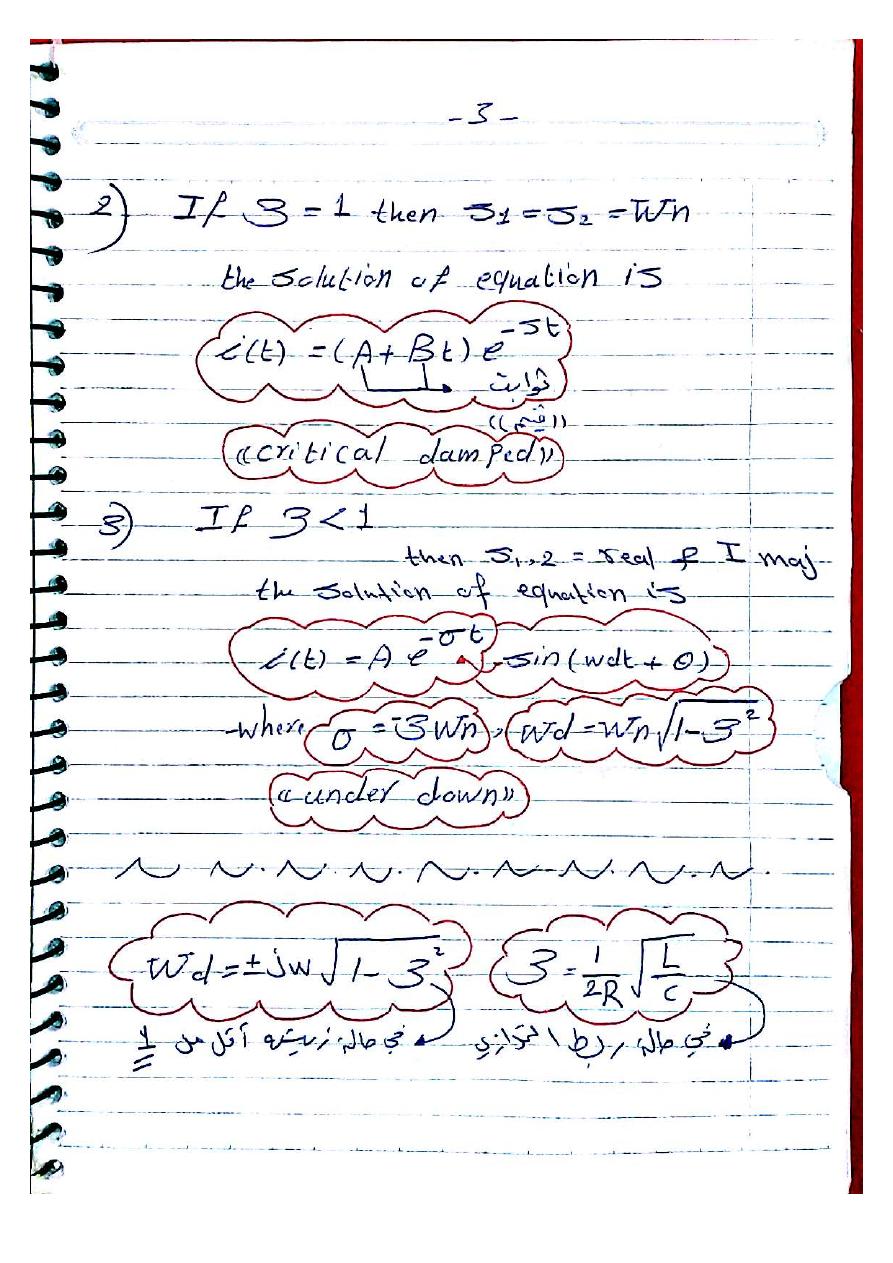 -3-
2) If ζ = 1 then S1 = S2 = Wn
the solution of equation is
i(t) = (A + Bt) e^-St
ثوابت
((قيم))
«critical damped»
3) If ζ < 1
then S1,2 = real & Imaj
the solution of equation is
i(t) = A e^-σt . sin(wdt + θ)
where σ = -ζWn, Wd = Wn√1-ζ²
«under down»
Wd = ±jw√1-ζ² ζ = 1/2R √L/C
في حالة ربط التوازي
في حالة زيته أقل من 1